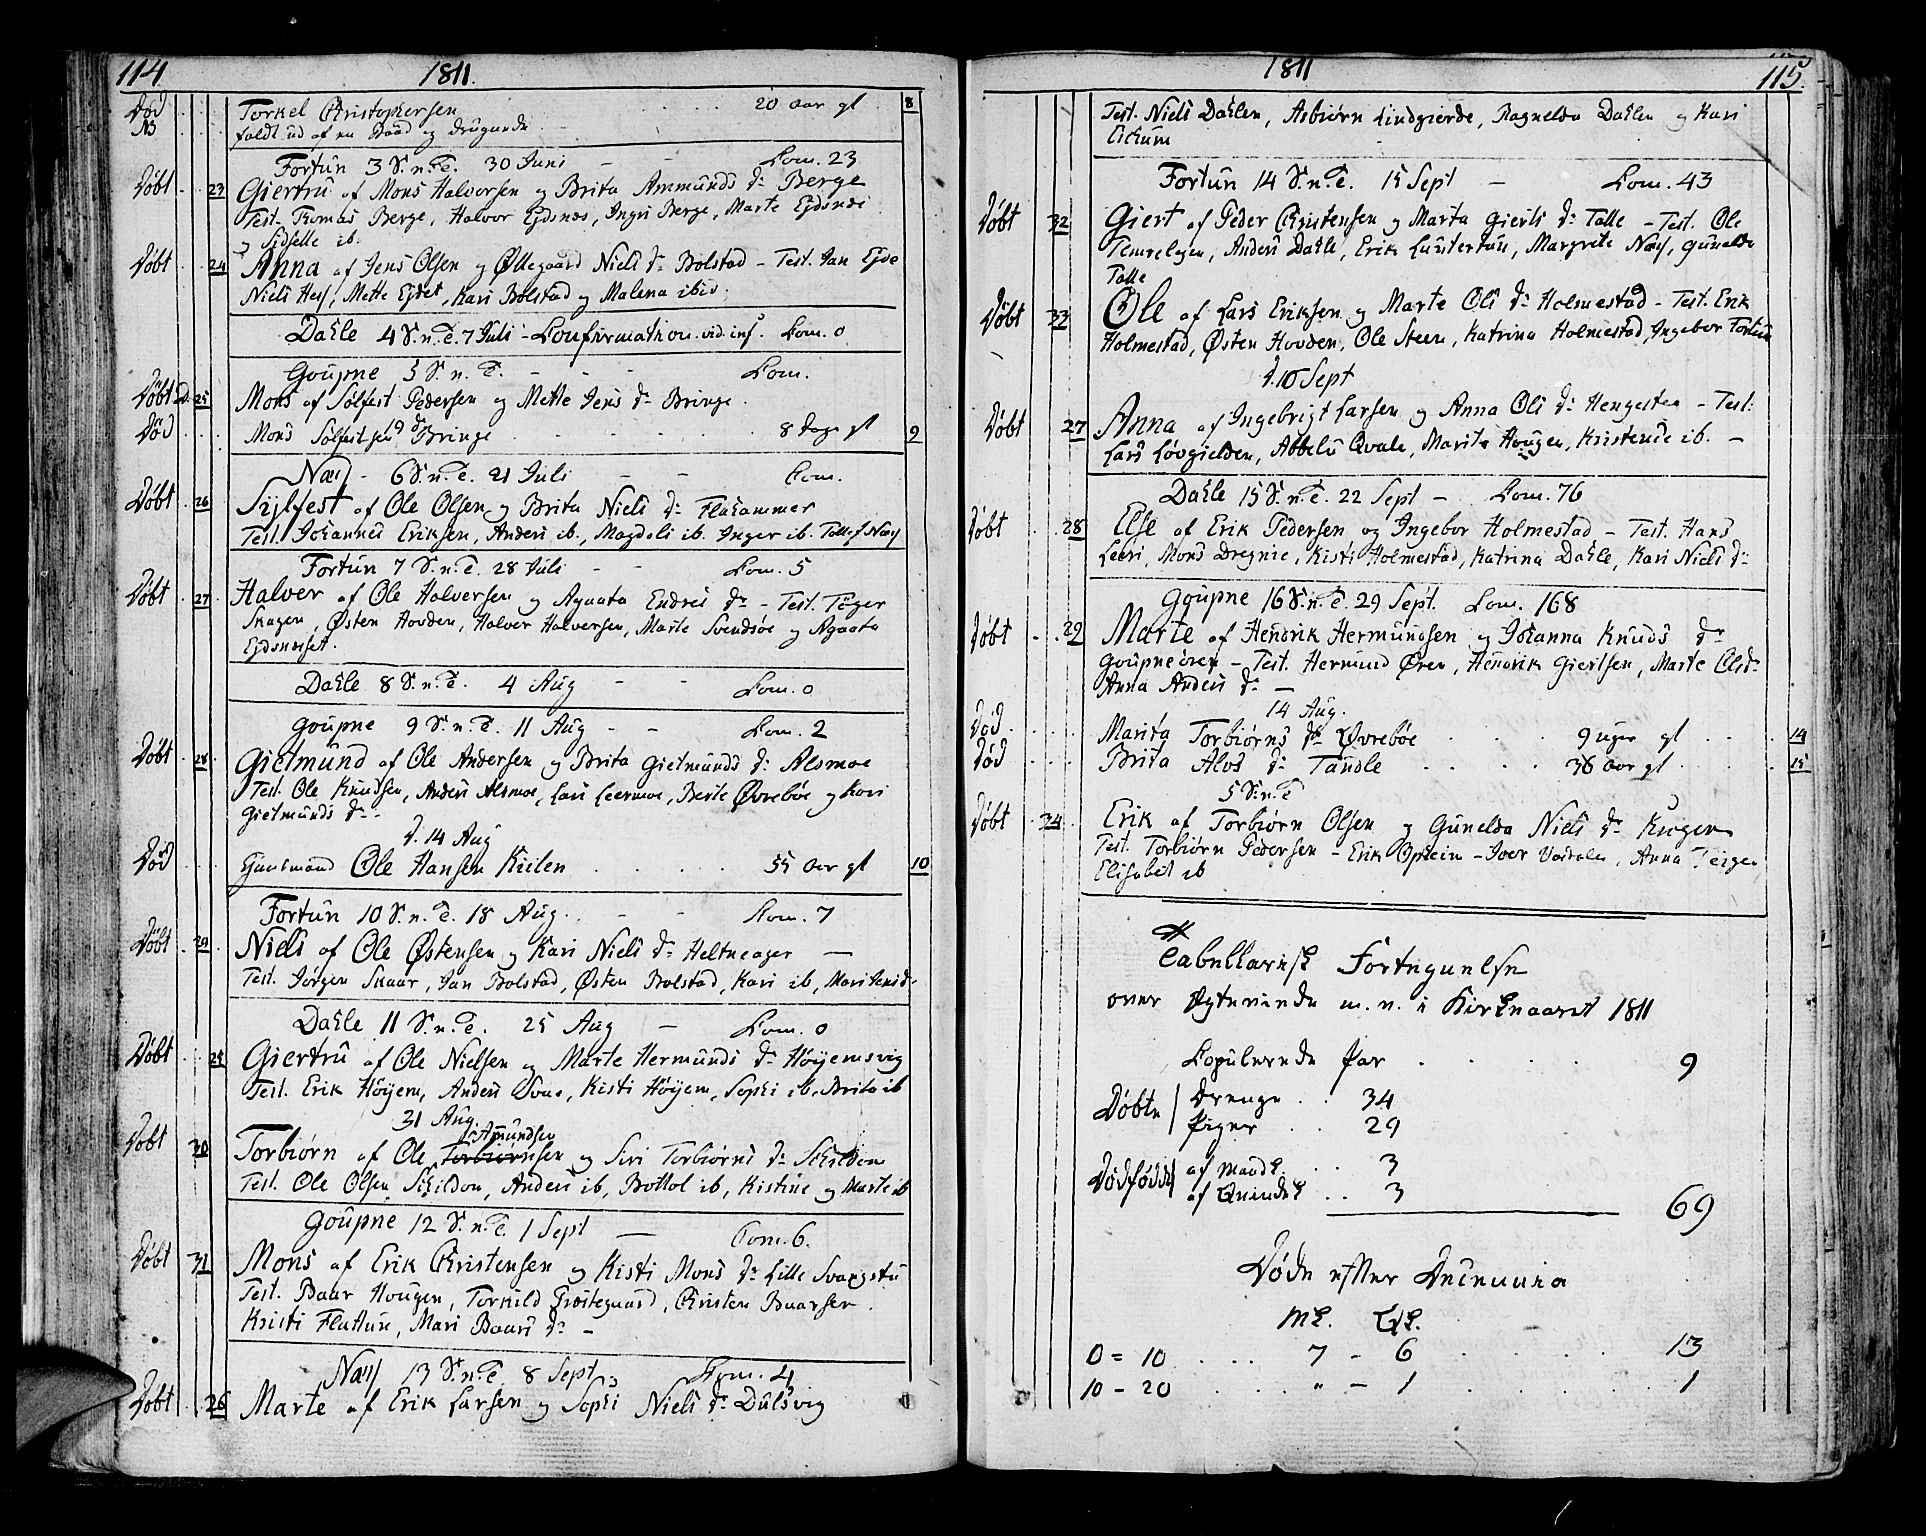 114 1811.
Død Torkel Christophersen 20 Aar gl 8
NB faldt ud af en Baad og
Fortun 3 S. n. T. 30 Juni - - Com. 23
Døbt 23 Giertru af Mons Halversen og Brita Ammunds Dr Berge
Test. Thomas Berge, Halvor Ejdsnes, Ingri Berge, Marte Ejdsnes
og Sidselle ib.
Døbt 24 Anna af Jens Olsen og Øllegaard Niels Dr Bolstad - Test. Jan Ejde
Niels Hess, Mette Ejdet, Kari Bolstad og Malena ibid.
Dahle 4 S. n. T. 7 Juli - Confirmation. vid. inf. Com. 0
Goupne 5 S. n. T. - - - Com.
Døbt D. 25 Mons af Sølfest Pedersen og Mette Jens Dr Bringe
Død Mons Sølfestsen Bringe 8 Dage gl 9
Næss - 6 S. n. T. 21 Juli - - Com.
Døbt 26 Sylfest af Ole Olsen og Brita Niels Dr Flahammer
Test. Johannes Eriksen, Anders ib., Magdeli ib. Inger ib. Tollef Næss
Fortun 7 S. n. T. 28 Juli - - Com. 5
Døbt 27 Halver af Ole Halversen og Agaata Endres Dr - Test. Tøger
Skagen, Østen Hovden, Halver Halversen, Marte Svendsøe og Agaata
Ejdsneset.
Dahle 8 S. n. T. 4 Aug - - Com. 0
Goupne 9 S. n. T. 11 Aug - - Com. 2
Døbt 28 Gietmund af Ole Andersen og Brita Gietmunds Dr Alsmoe
Test. Ole Knudsen, Anders Alsmoe, Lars Leermoe, Berte Øvrebøe og Kari
Gietmunds Dr.
d. 14 Aug
Død Ole Hansen Kiilen 55 Aar gl 10
Fortun 10 S. n. T. 18 Aug. - - Com. 7
Døbt 29 Niels af Ole Østensen og Kari Niels Dr Heltneager
Test. Jørgen Skaar, Jan Bolstad, Østen Bolstad, Kari ib,
Dahle 11 S. n. T. 25 Aug - Com. 0
Døbt 25 Giertru af Ole Nielsen og Marte Hermunds Dr Høyemsvig
Test. Erik Høyem, Anders Svae, Kisti Høyem, Sophi ib. Brita ib
31 Aug.
Amundsen
Døbt 30 Torbiørn af Ole Torbiørnsen og Siri Torbiørns Dr Skildon
Test. Ole Olsen Skildon, Anders ib, Bottol ib, Kistine og Marte ib
Goupne 12 S. n. T. 1 Sept - Com. 6.
Døbt 31 Mons af Erik Christensen og Kisti Mons Dr Lille Svangstu
Test. Baar Hougen, Torkild Prestegaard, Christen Baarsen.
Kristi Flattun, Mari Baars Dr -
Næss 13 S. n. T. 8 Sept Com. 4
Døbt 26 Marte af Erik Larsen og Sophi Niels Dr Dulsvig
1811 115.
Test. Niels Dahlen, Asbiørn Lindgierde, Ragnelda Dahlen og Kari
Fortun 14 S. n. T. 15 Sept - Com. 43
Døbt 32 Giert af Peder Christensen og Marta Gierts Dr Talle - Test. Ole
Anders Dahle, Erik Lustertun, Margrete Næss, Gunelda
Talle
Døbt 33 Ole af Lars Eriksen og Marte Ols Dr Holmestad - Test. Erik
Holmestad, Østen Hovden, Ole Steen, Katrina Holmestad, Ingebor Fortun
d. 10 Sept
Døbt 27 Anna af Ingebrigt Larsen og Anna Ols Dr Hengesten - Test:
Lars Løvgielden, Abbelu Qvale, Marite Hougen, Kristense ib. -
Dahle 15 S. n. T. 22 Sept - Com. 76
Døbt 28 Else af Erik Pedersen og Ingebor Holmestad - Test. Hans
Leeri, Mons Dregnie, Kisti Holmestad, Katrina Dahle, Kari Niels Dr
Goupne 16 S. n. T. 29 Sept. Com. 168
Døbt 29 Marte af Hendrik Hermundsen og Johanna Knuds Dr
Goupneøren - Test. Hermund Øren, Hendrik Giertsen, Marte Ols Dr
Anna Anders Dr -
14 Aug.
Død Marita Torbiørns Dr Øvrebøe 9 uger gl 14
Død Brita Alvs Dr Tandle 36 Aar gl 15
5 S. n. T
Døbt 34 Erik af Torbiørn Olsen og Gunelda Niels Dr Krogen
Test. Torbiørn Pedersen - Erik Opheim - Iver Vartalen, Anna Teigen
Elisabet ib
Tabellarisk Fortegnelse
over Ægteviede m. v. i Kirkeaaret 1811
Copulerede Par 9
Døbte Drenge 34
Piger 29
Dødfødde af Mandk. 3
af Qvindek 3 69
Døde efter Decennia
Mk. Qk.
0 = 10 7 - 6 13
10 - 20 " - 1 1